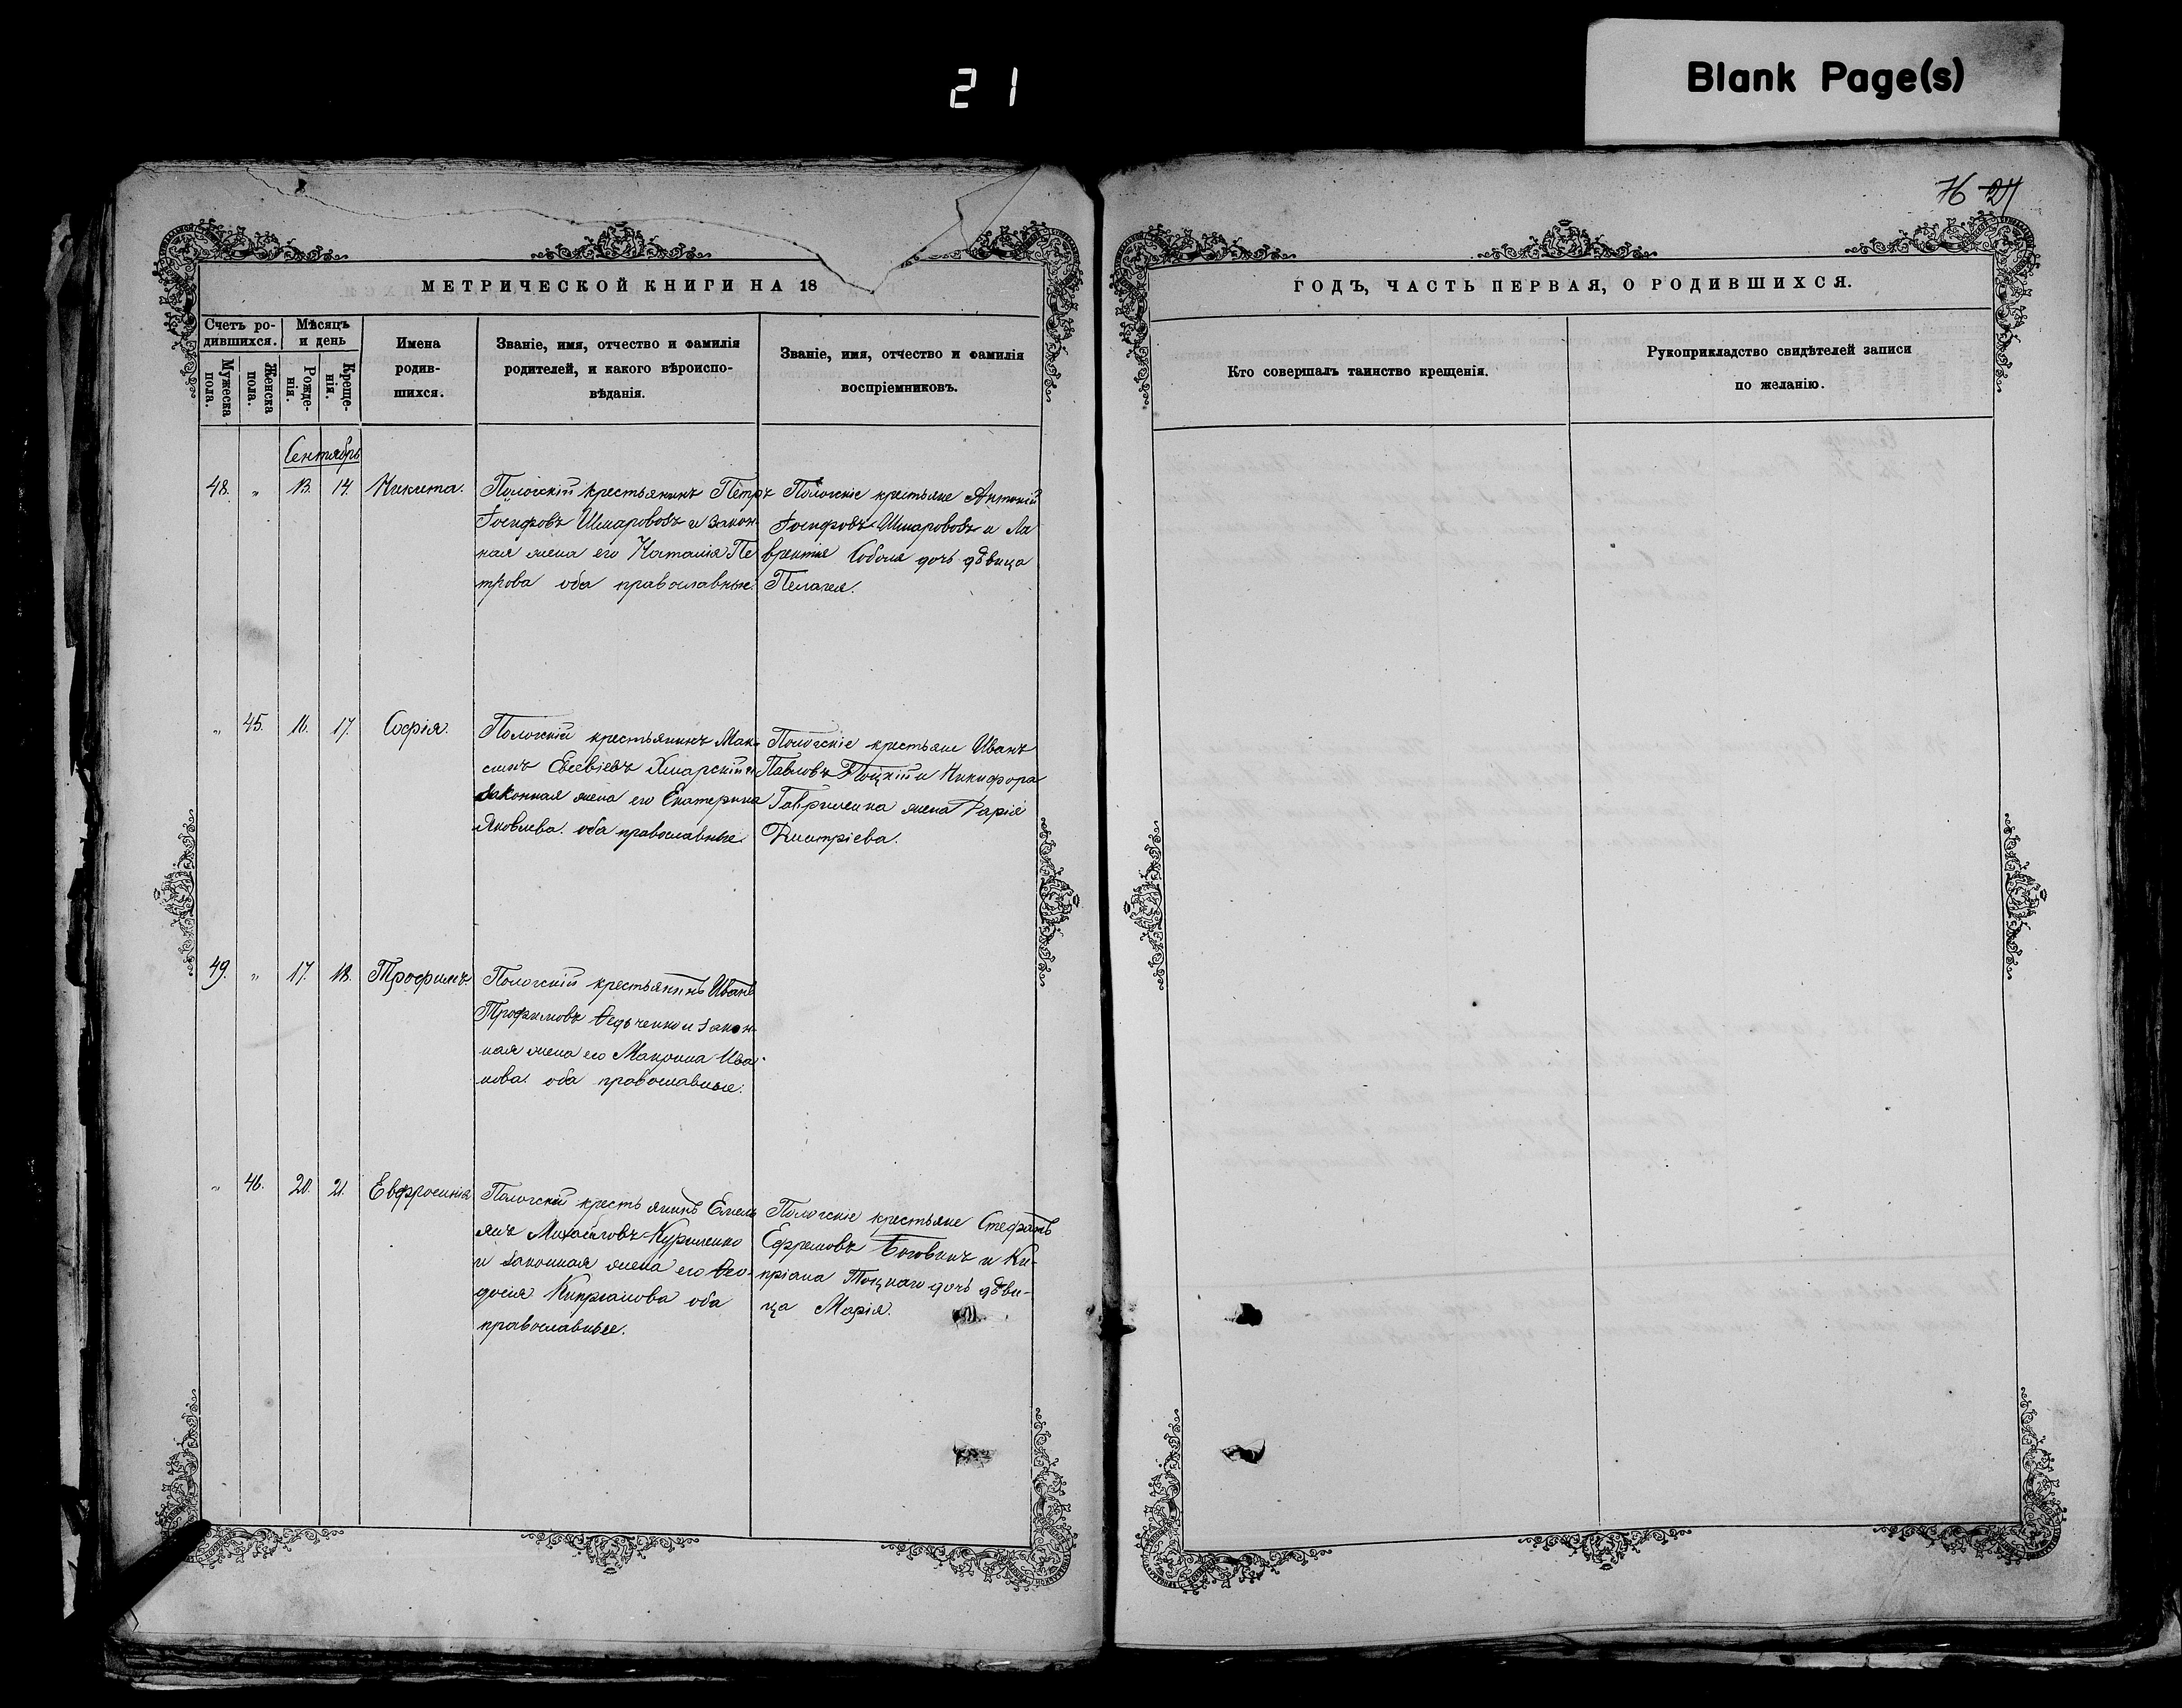 21
Blank Page(s)
76 24
МЕТРИЧЕСКОЙ КНИГИ НА 18
Счетъ ро-
дившихся.
Мѣсяцъ
и день
Мужеска
пола.
Женска
пола.
Рожде-
нія.
Креще-
нія.
Имена
родив-
шихся.
Званіе, имя, отчество и фамилія
родителей, и какого вѣроиспо-
вѣданія.
Званіе, имя, отчество и фамилія
воспріемниковъ.
Сентябрь
48. „ 13. 14. Никита.
Пологскій крестьянинъ Пётръ
Іосифовъ Шмаровозъ и закон
ная жена его Наталія Пе
трова оба православные.
Пологскіе крестьяне Антоній
Іосифовъ Шмаровозъ и Ла
врентія Соболя дочь дѣвица
Пелагея.
„ 45. 16. 17. Софія.
Пологскій крестьянинъ Мак-
симъ Евсевіевъ Хмарскій и
законная жена его Екатерина
Яковлева. оба православные.
Пологскіе крестьяне Иванъ
Павловъ Тоцкій и Никифора
Гавриленка жена Дарія
Дмитріева.
49. „ 17. 18. Трофимъ.
Пологскій крестьянинъ Иванъ
Трофимовъ Ѳедьченко и закон-
ная жена его Макрина Ива-
нова. оба православные.
„ 46. 20. 21. Евфросинія
Пологскій крестьянинъ Емель
янъ Михайловъ Куриленко
и законная жена его Ѳео-
досія Кипріанова оба
православные.
Пологскіе крестьяне Стефанъ
Ефремовъ Боговинъ и Ки-
пріана Тоцкаго дочь дѣви-
ца Марія.
ГОДЪ, ЧАСТЬ ПЕРВАЯ, О РОДИВШИХСЯ.
Кто совершалъ таинство крещенія.
Рукоприкладство свидѣтелей записи
по желанію.